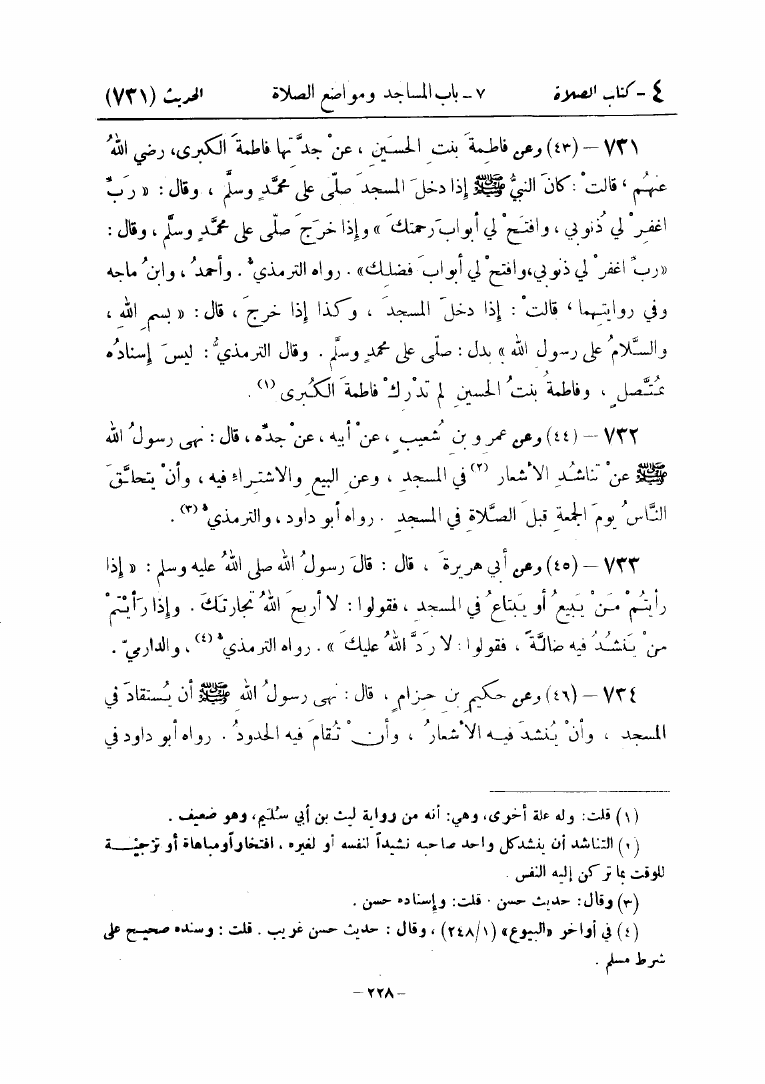 ٤ - كتاب الصلاة ٧ - باب المساجد ومواضع الصلاة الحديث (٧٣١)
٧٣١ - (٤٣) وعن فاطمةَ بنتِ الحسَينِ ، عنْ جدَّتِها فاطمةَ الكبرى، رضي اللهُ
عنهُم ، قالتْ : كانَ النبيُّ ﷺ إذا دخلَ المسجدَ صلّى على محمَّدٍ وسلَّم ، وقال : « ربِّ
اغفِرْ لي ذُنوبي ، وافتَحْ لي أبوابَ رحمتكَ » وإذا خرَجَ صلّى على محمَّدٍ وسلَّم ، وقال :
«ربِّ اغفرْ لي ذنوبي،وافتحْ لي أبوابَ فضلِك» . رواه الترمذيُّ . وأحمدُ ، وابنُ ماجه
وفي روايتِهما ، قالتْ : إذا دخلَ المسجدَ ، وكذا إذا خرجَ ، قال : « بسمِ اللهِ ،
والسَّلامُ على رسولِ الله » بدل : صلّى على محمدٍ وسلَّم . وقال الترمذيُّ : ليسَ إسنادُه
بمُتَّصلٍ ، وفاطمةُ بنتُ الحسينِ لم تدْرِكْ فاطمةَ الكُبرى (١) .
٧٣٢ - (٤٤) وعن عمرِو بنِ شُعيبٍ ، عنْ أبيه ، عنْ جدِّه ، قال : نهى رسولُ الله
ﷺ عنْ تناشُدِ الأشعارِ (٢) في المسجدِ ، وعنِ البيعِ والاشتِراءِ فيه ، وأنْ يتحلَّقَ
النَّاسُ يومَ الجمعةِ قبلَ الصَّلاةِ في المسجدِ . رواه أبو داود ، والترمذيُّ (٣) .
٧٣٣ - (٤٥) وعن أبي هريرةَ ، قال : قالَ رسولُ الله صلى اللهُ عليه وسلم : « إذا
رأيتُمْ مَنْ يَبيعُ أو يَبتاعُ في المسجدِ ، فقولوا : لا أربحَ اللهُ تجارتَكَ . وإذا رَأَيْتمْ
منْ يَنشُدُ فيه ضالَّةً ، فقولوا : لا ردَّ اللهُ عليكَ » . رواه الترمذيُّ (٤) ، والدارميّ .
٧٣٤ - (٤٦) وعن حكيمِ بنِ حِزامٍ ، قال : نهى رسولُ اللهِ ﷺ أن يُستقادَ في
المسجد ، وأنْ يُنشدَ فيه الأشعارُ ، وأنْ تُقامَ فيه الحدودُ . رواه أبو داود في
(١) قلت: وله علة أخرى، وهي: أنه من رواية ليث بن أبي سُليم، وهو ضعيف .
(٢) التناشد أن ينشدكل واحد صاحبه نشيداً لنفسه أو لغيره ، افتخاراًومباهاة أو تزجيّة
للوقت بما تركن إليه النفس .
(٣) وقال: حديث حسن . قلت: وإسناده حسن .
(٤) في أواخر «البيوع» (٢٤٨/١) ، وقال : حديث حسن غريب . قلت : وسنده صحيح على
شرط مسلم .
- ٢٢٨ -